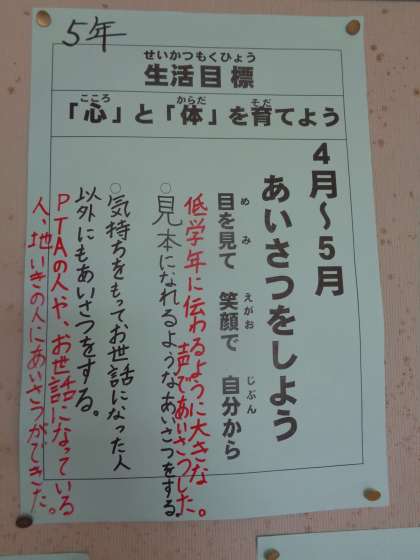 5年
せいかつもくひょう
生活目標
こころ からだ そだ
「心」と「体」を育てよう
4月～5月
あいさつをしよう
めみ えがお じぶん
目を見て 笑顔で 自分から
低学年に伝わるように大きな
声であいさつした。
○見本になれるようなあいさつをする
○気持ちをもってお世話になった人
以外にもあいさつをする。
PTAの人や、お世話になっている
人、地いきの人にあいさつができた。